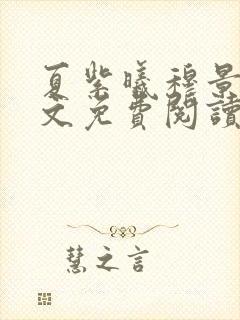 夏紫曦穆景
文免費閱讀
慧之言